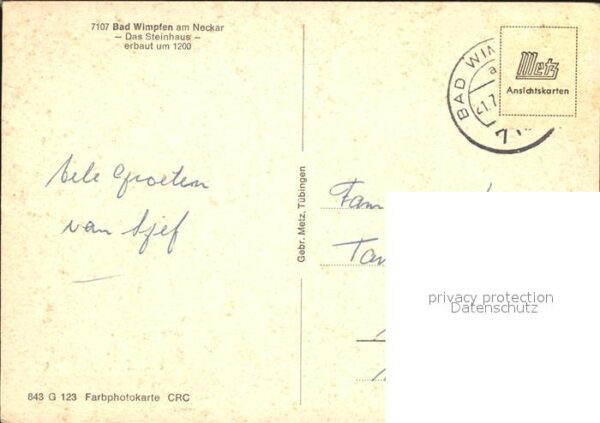 7107 Bad Wimpfen am Neckar
— Das Steinhaus —
erbaut um 1200
BAD WIM
21.7.
Metz
Ansichtskarten
Vele Groeten
van Sjef
Gebr. Metz, Tübingen
Fam
Tan
privacy protection
Datenschutz
843 G 123 Farbphotokarte CRC